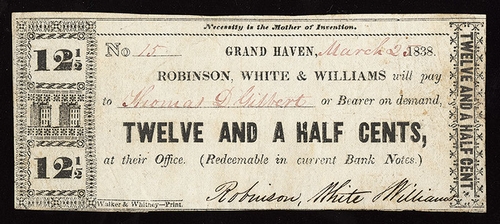 Necessity is the Mother of Invention.
12 1/2
No 15 GRAND HAVEN, March 2 1838.
ROBINSON, WHITE & WILLIAMS will pay
to Thomas D Gilbert or Bearer on demand,
TWELVE AND A HALF CENTS,
at their Office. (Redeemable in current Bank Notes.)
12 1/2
Walker & Whitney—Print.
Robinson, White Williams
TWELVE AND A HALF CENT